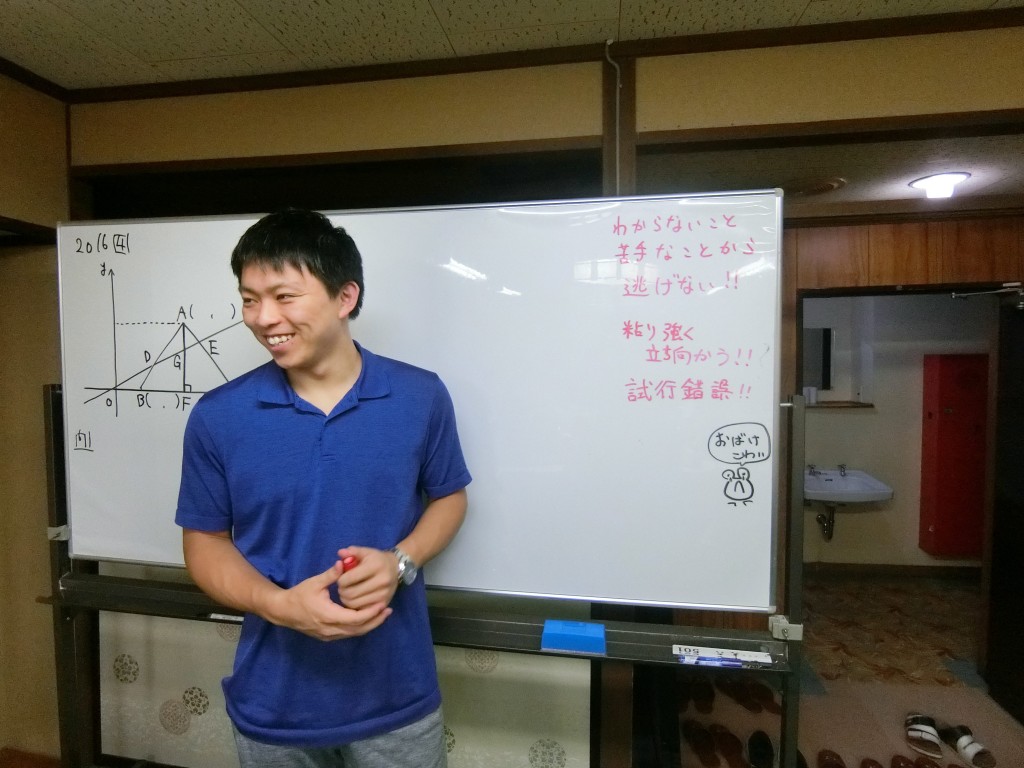 2016 四
y
A( , )
D
E
G
O
B( , )
F
問1
わからないこと
苦手なことから
逃げない!!
粘り強く
立ち向かう!!
試行錯誤!!
おばけ
こわい
501